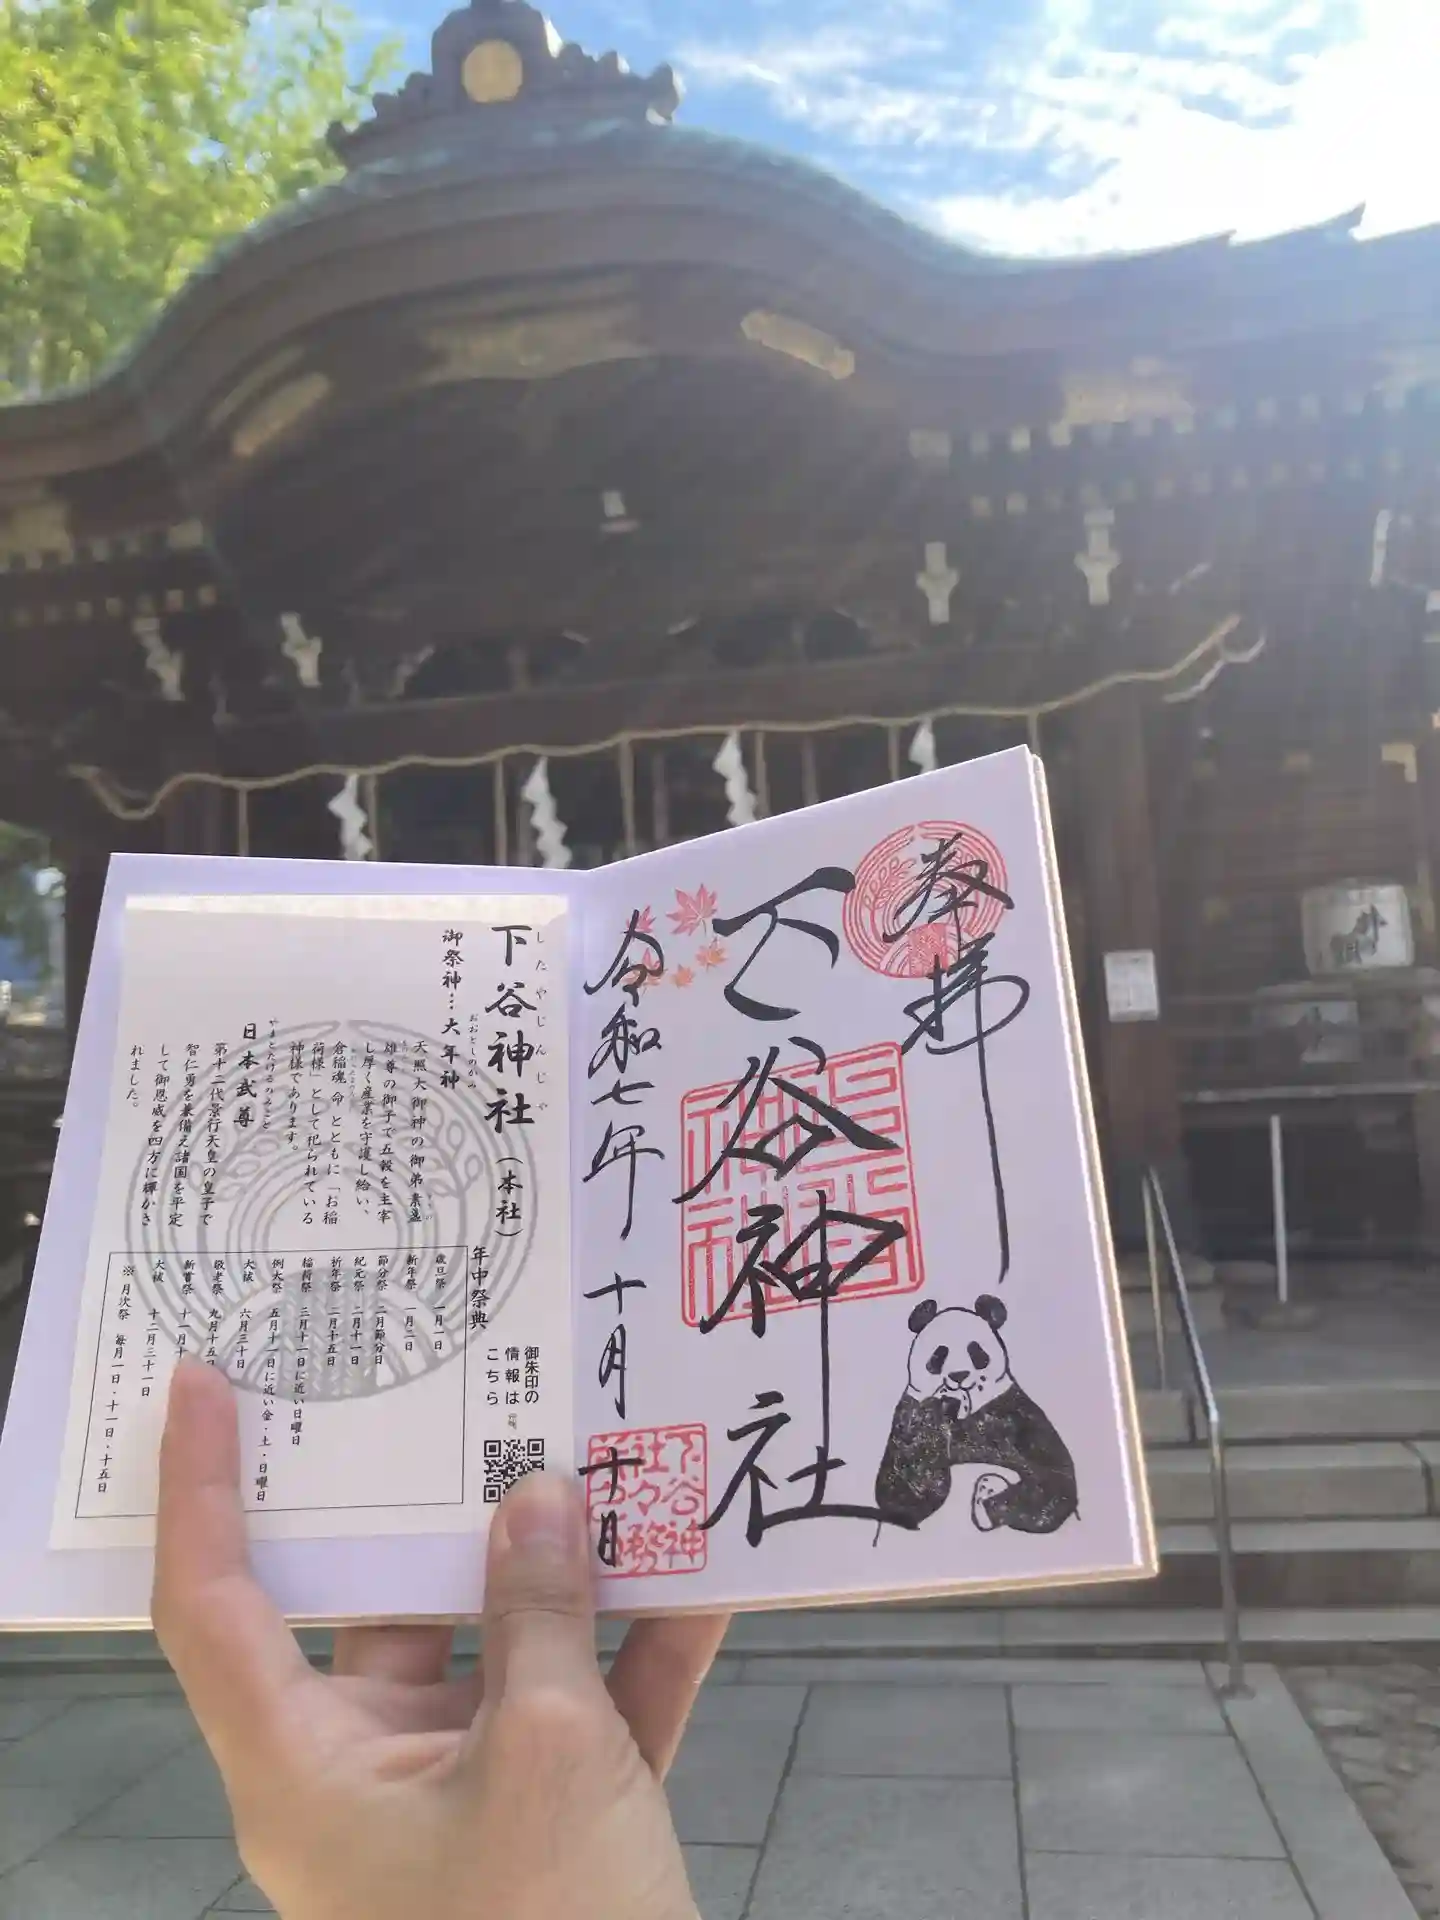 奉拝
下谷神社
令和七年十月十一日
下谷神
社々務
下谷神社（本社）
したやじんじゃ
御祭神…大年神
おおとしのかみ
天照大御神の御弟素盞
雄尊の御子で五穀を主宰
し厚く産業を守護し給い、
倉稲魂命とともに「お稲
荷様」として祀られている
神様であります。
日本武尊
やまとたけるのみこと
第十二代景行天皇の皇子で
智仁勇を兼備え諸国を平定
して御恩威を四方に輝かさ
れました。
年中祭典
歳旦祭 一月一日
新年祭 一月二日
節分祭 二月節分日
紀元祭 二月十一日
祈年祭 二月十五日
稲荷祭 三月十一日に近い日曜日
例大祭 五月十一日に近い金・土・日曜日
大祓 六月三十日
敬老祭 九月十五日
新嘗祭 十一月
大祓 十二月三十一日
※月次祭 毎月一日・十一日・十五日
御朱印の
情報は
こちら